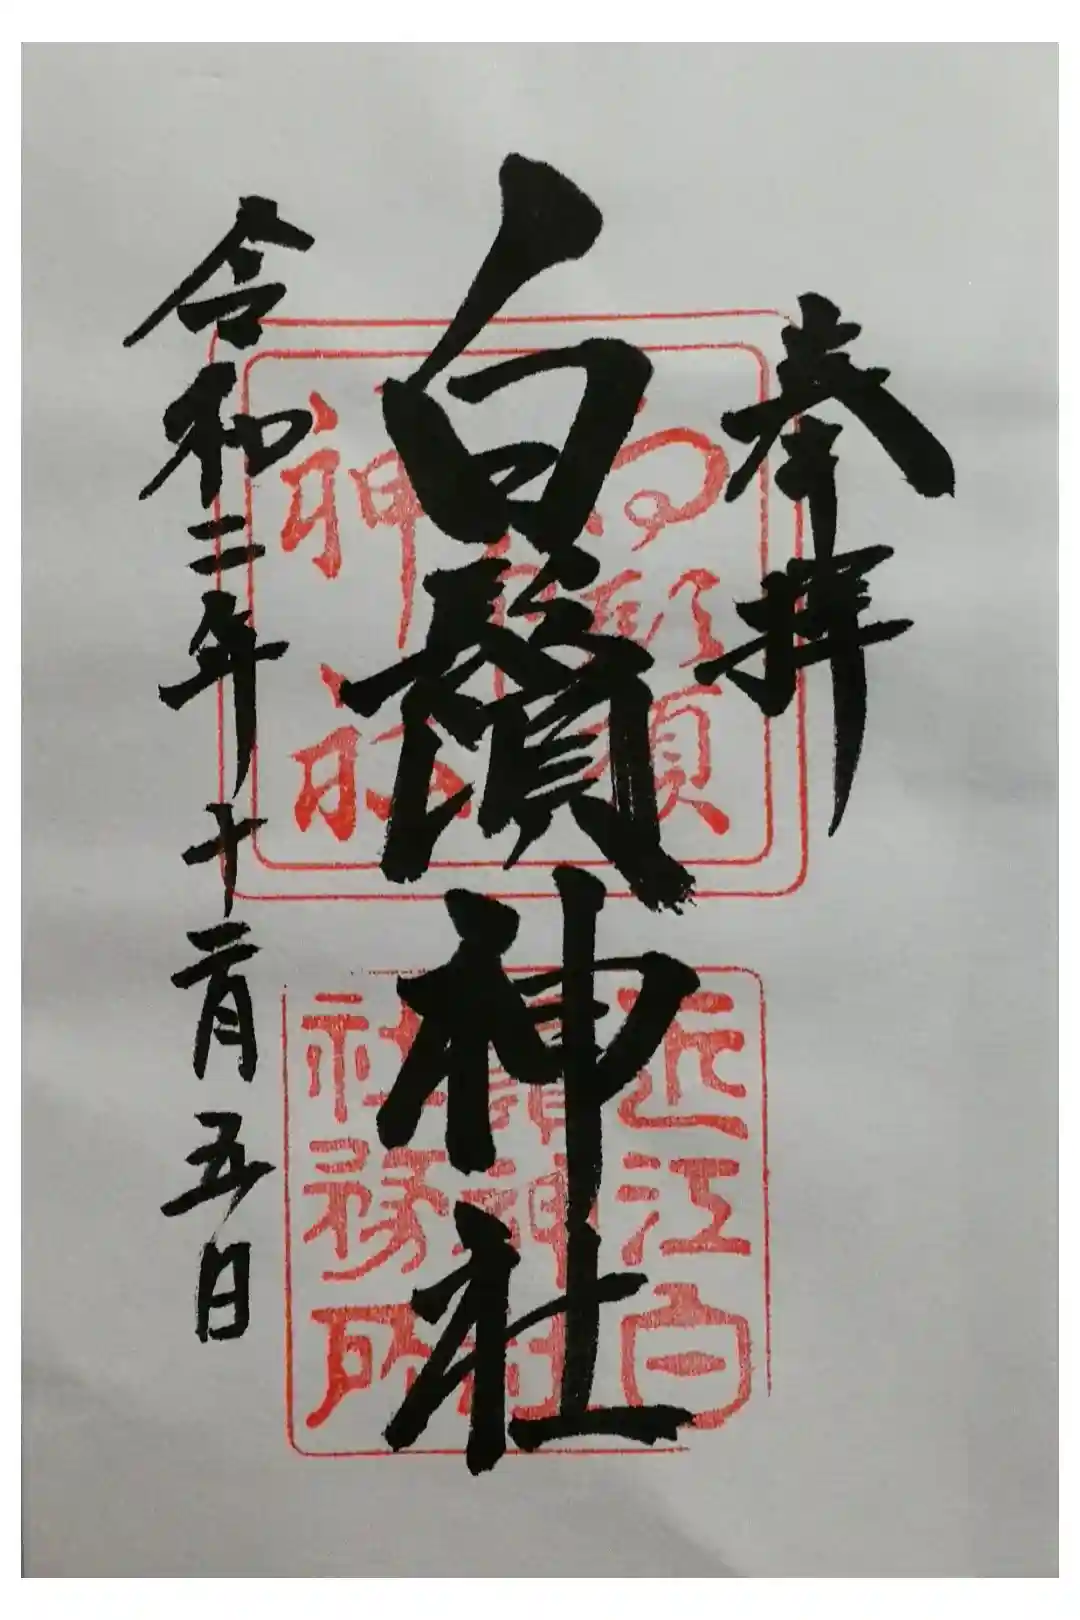 奉拝
白鬚神社
令和二年十二月五日
神社
近江白
鬚神社
社務所